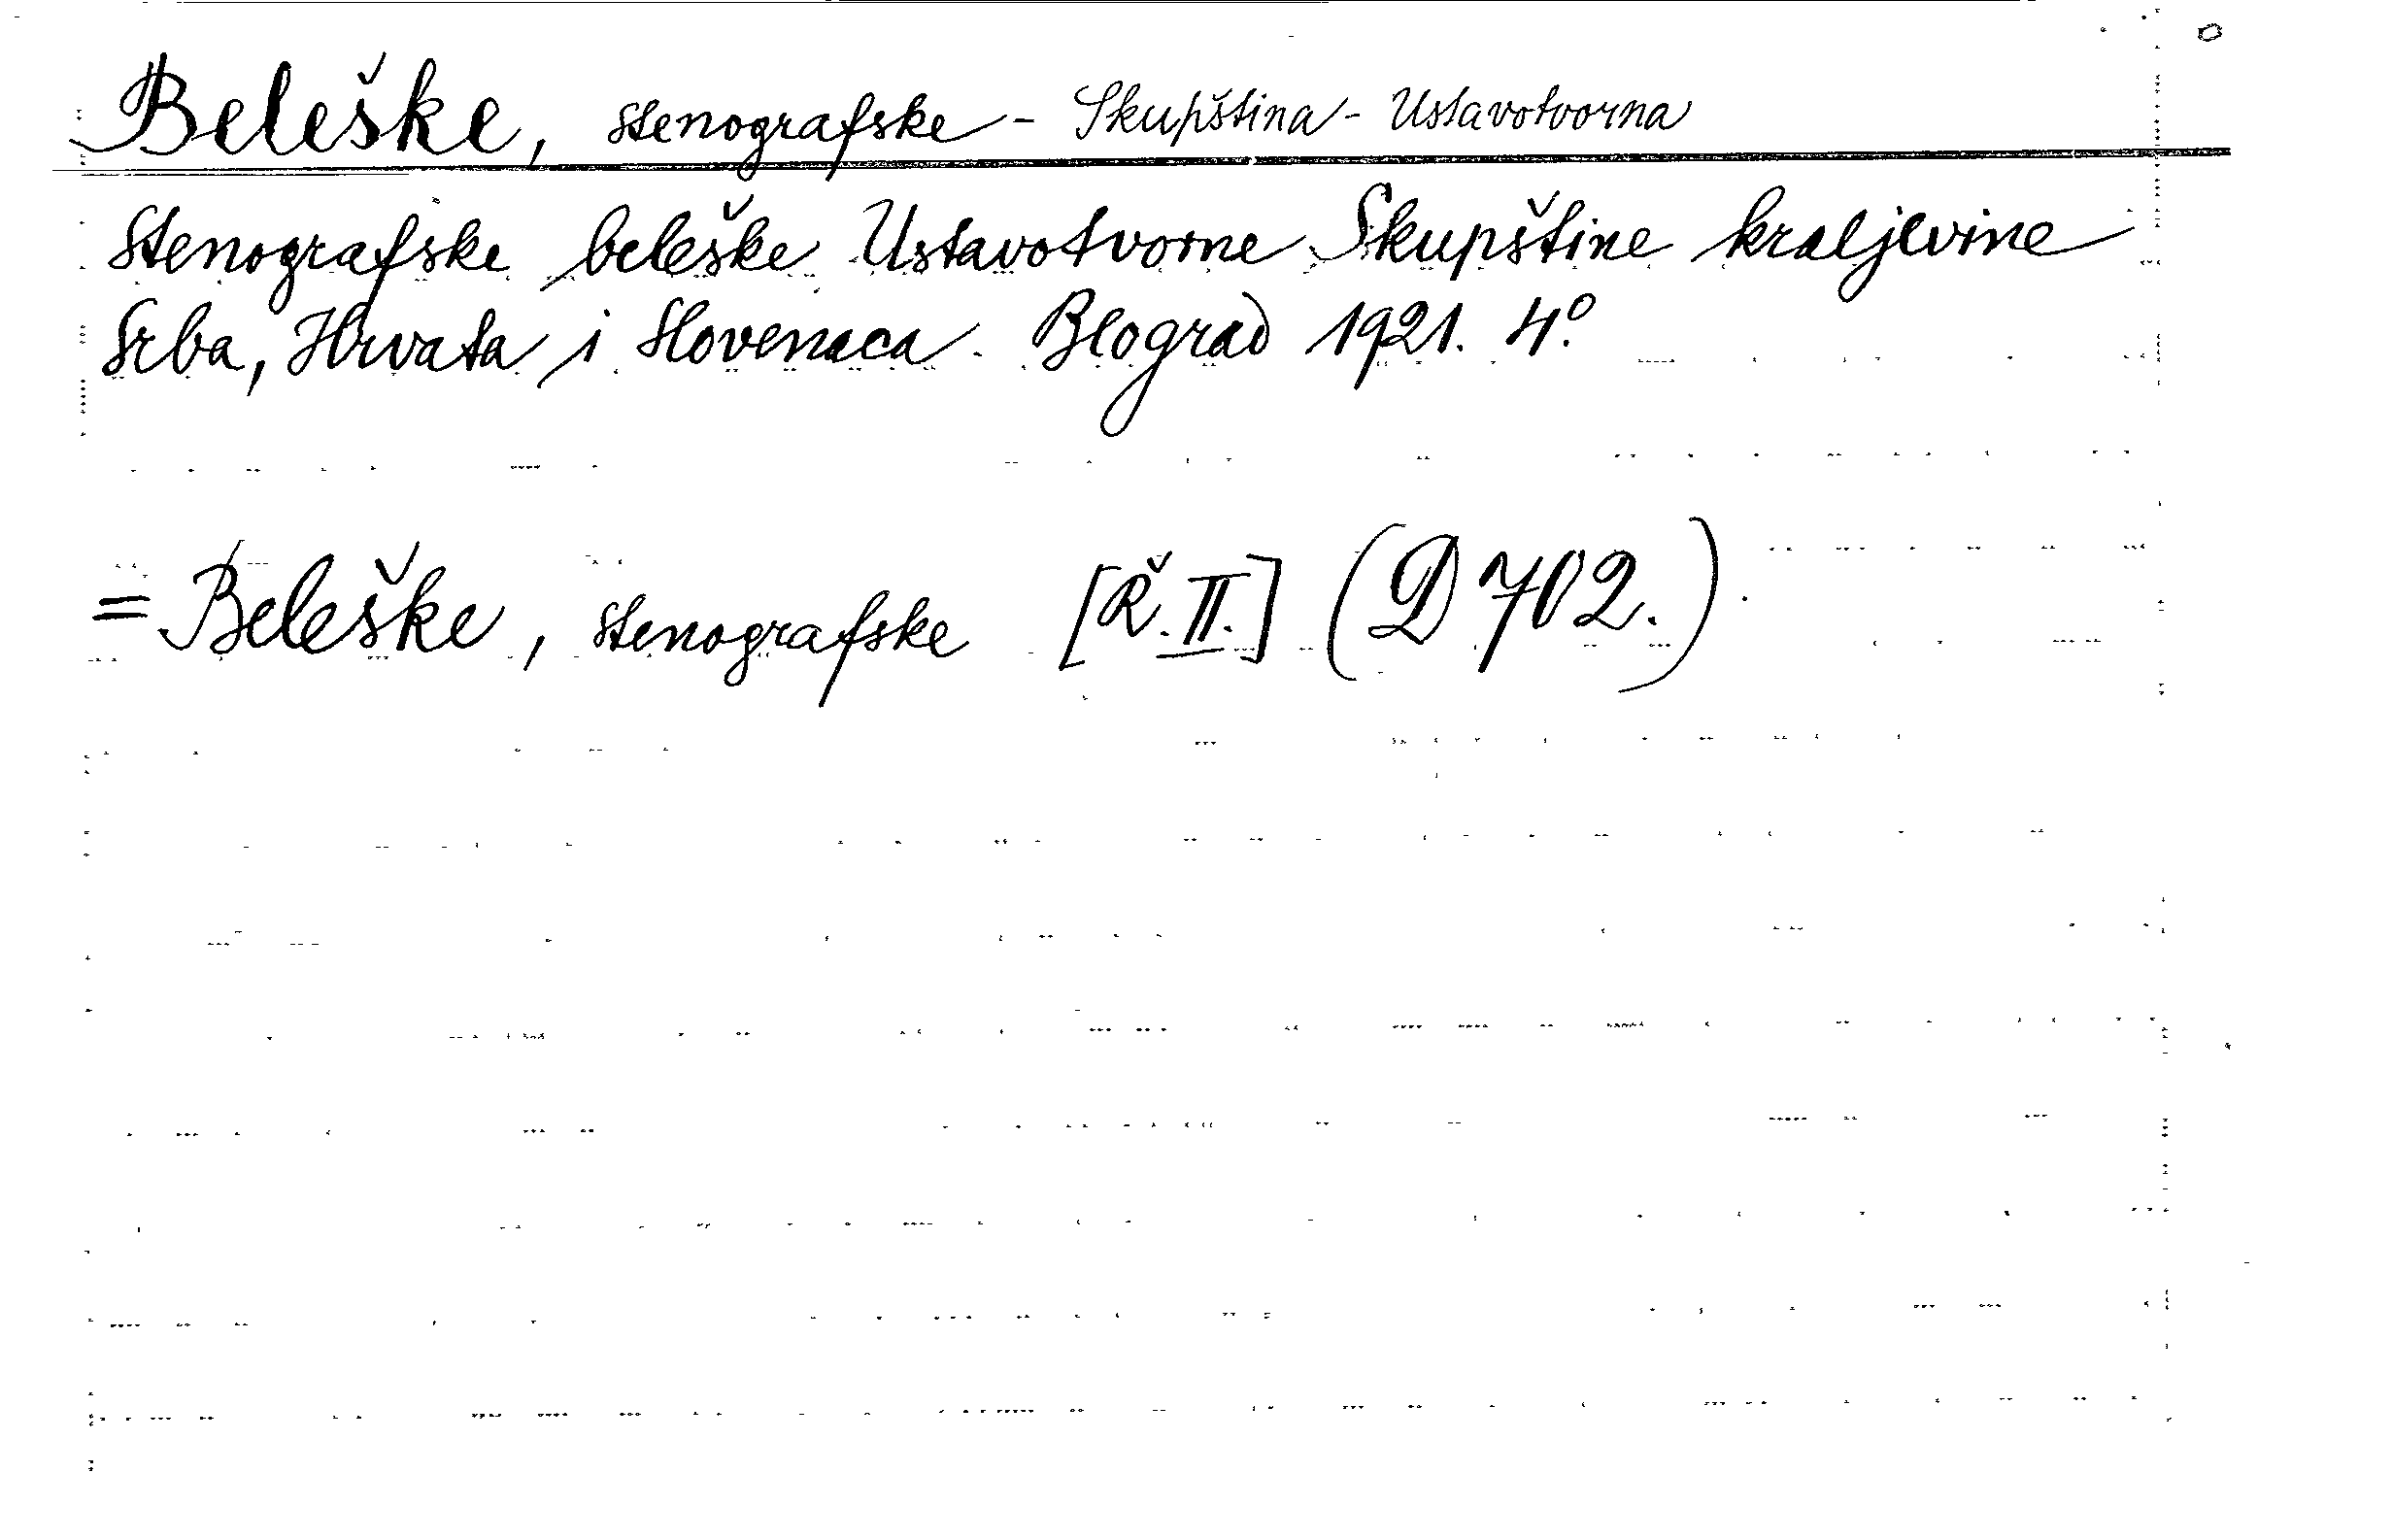 Beleške, stenografske - Skupština - Ustavotvorna
Stenografske beleške Ustavotvorne Skupštine kraljevine
Srba, Hrvata i Slovenaca. Beograd 1921. 4°.
= Beleške, stenografske [Ř. II.] (D 702.)